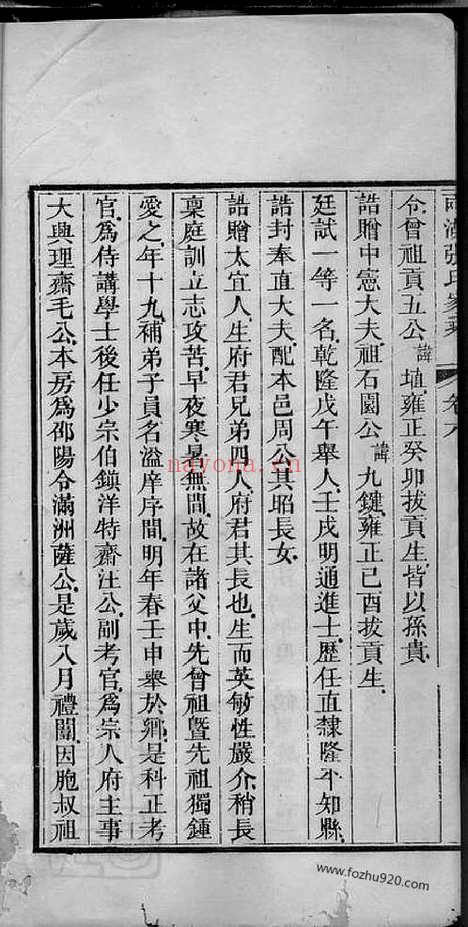 張氏
卷六
令曾祖貢五公諱埴雍正癸卯拔貢生皆以孫貴
誥贈中憲大夫祖石園公諱九鍵雍正己酉拔貢生
廷試一等一名乾隆戊午舉人壬戌明通進士歷任直隸隆平知縣
誥封奉直大夫配本邑周公其昭長女
誥贈太宜人生府君兄弟四人府君其長也生而英敏性嚴介稍長
稟庭訓立志攻苦早夜寒暑無間故在諸父中先曾祖暨先祖獨鍾
愛之年十九補弟子員名溢庠序間明年春壬申舉於鄉是科正考
官為侍講學士後任少宗伯鎮洋特齋汪公副考官為宗人府主事
大興理齋毛公本房為邵陽令滿洲薩公是歲八月禮闈因胞叔祖
nayona.cn
www.fozhu920.com